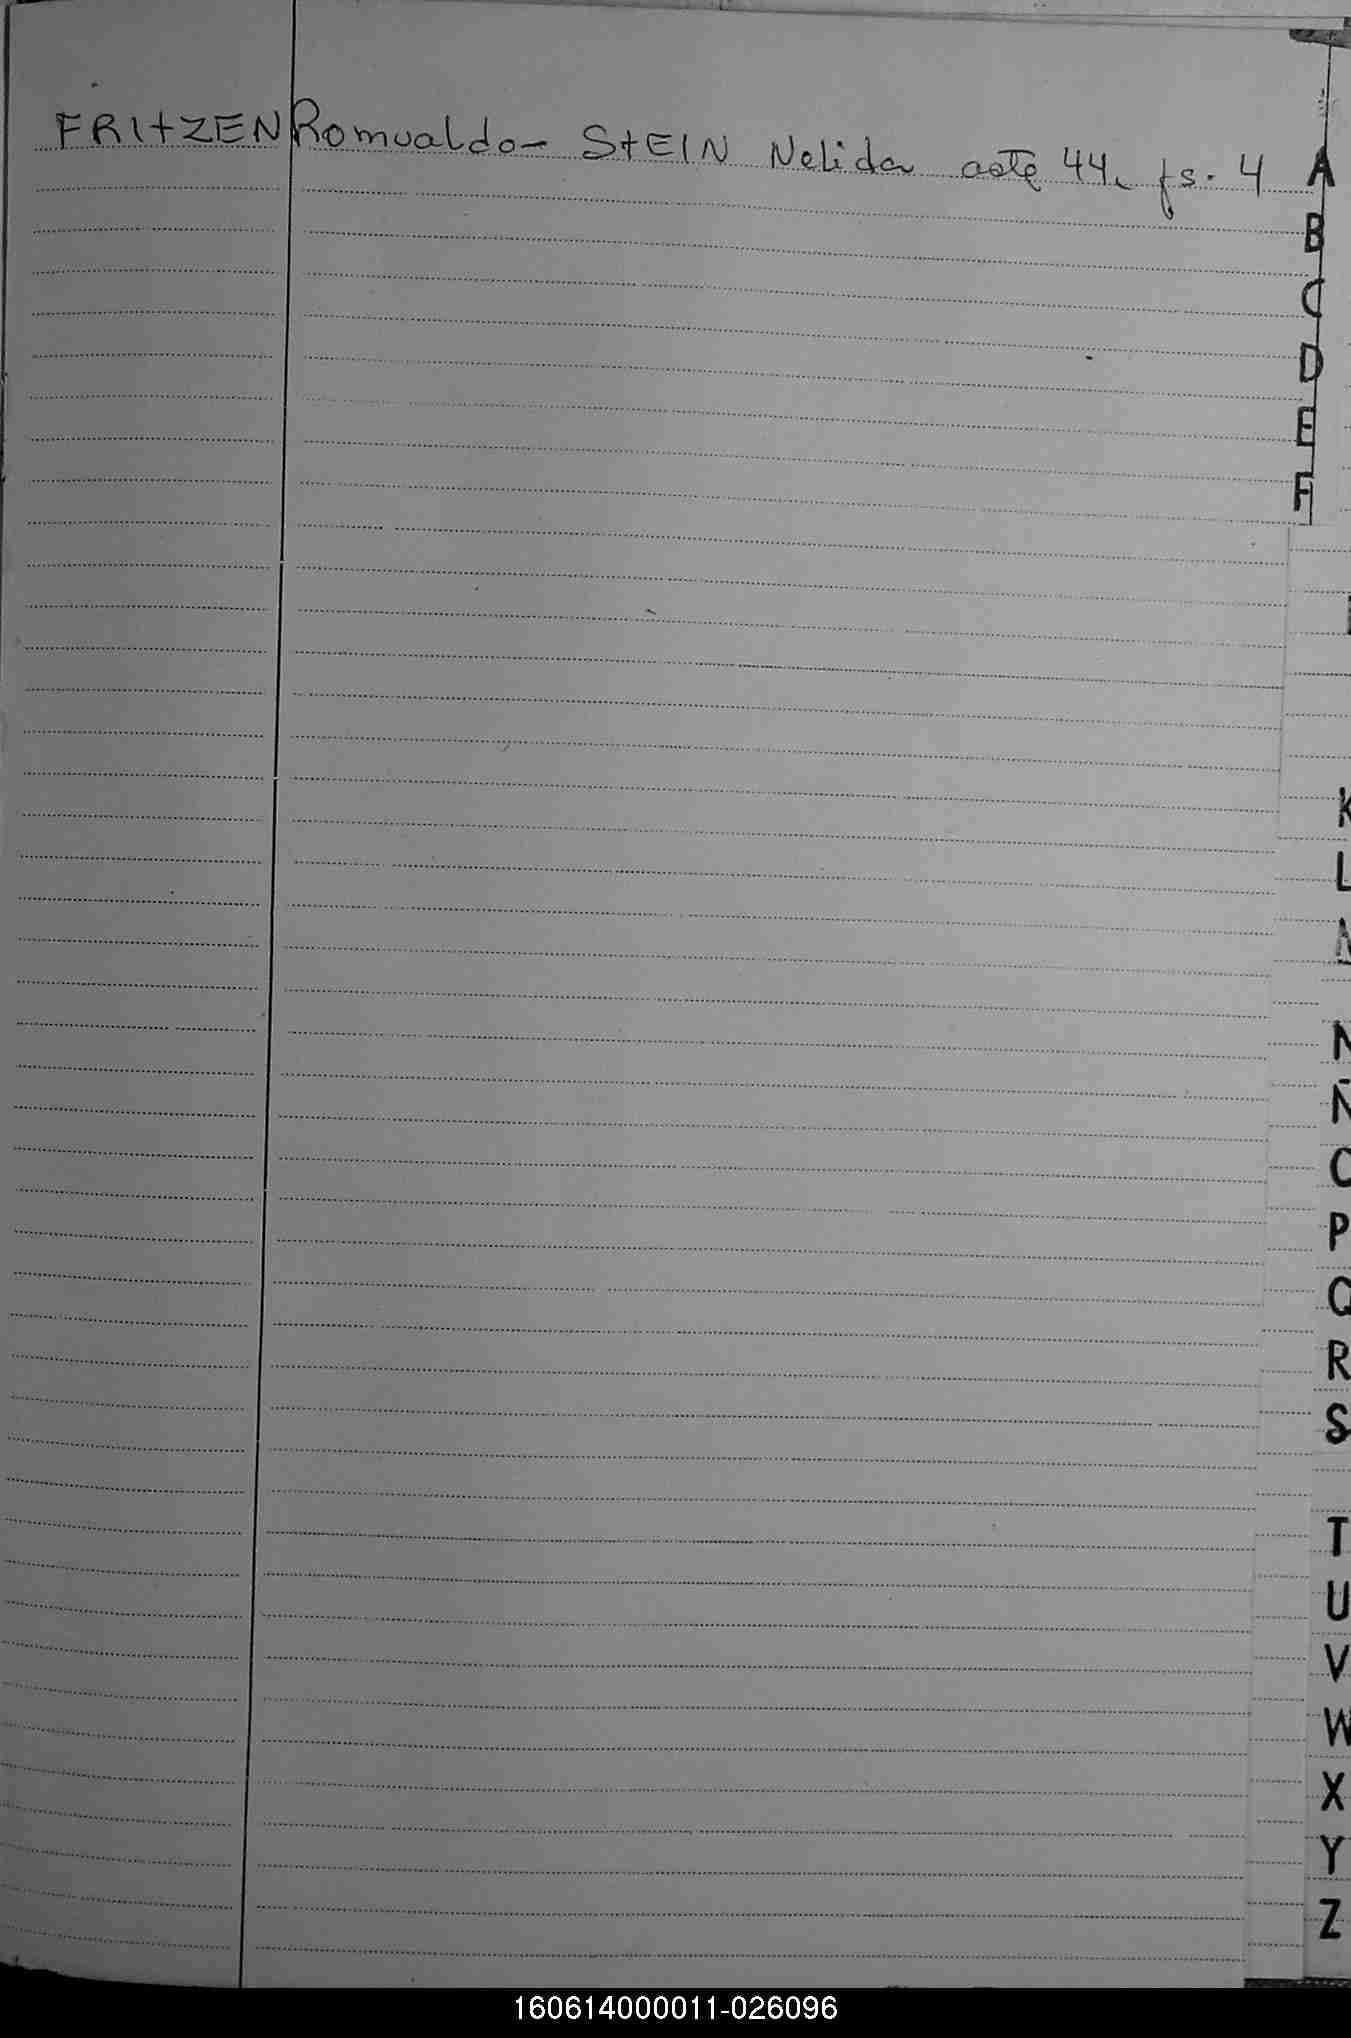 FRITZEN Romualdo - STEIN Nelida acta 44, fs. 4
A
B
C
D
E
F
K
L
N
Ñ
O
P
Q
R
S
T
U
V
W
X
Y
Z
160614000011-026096